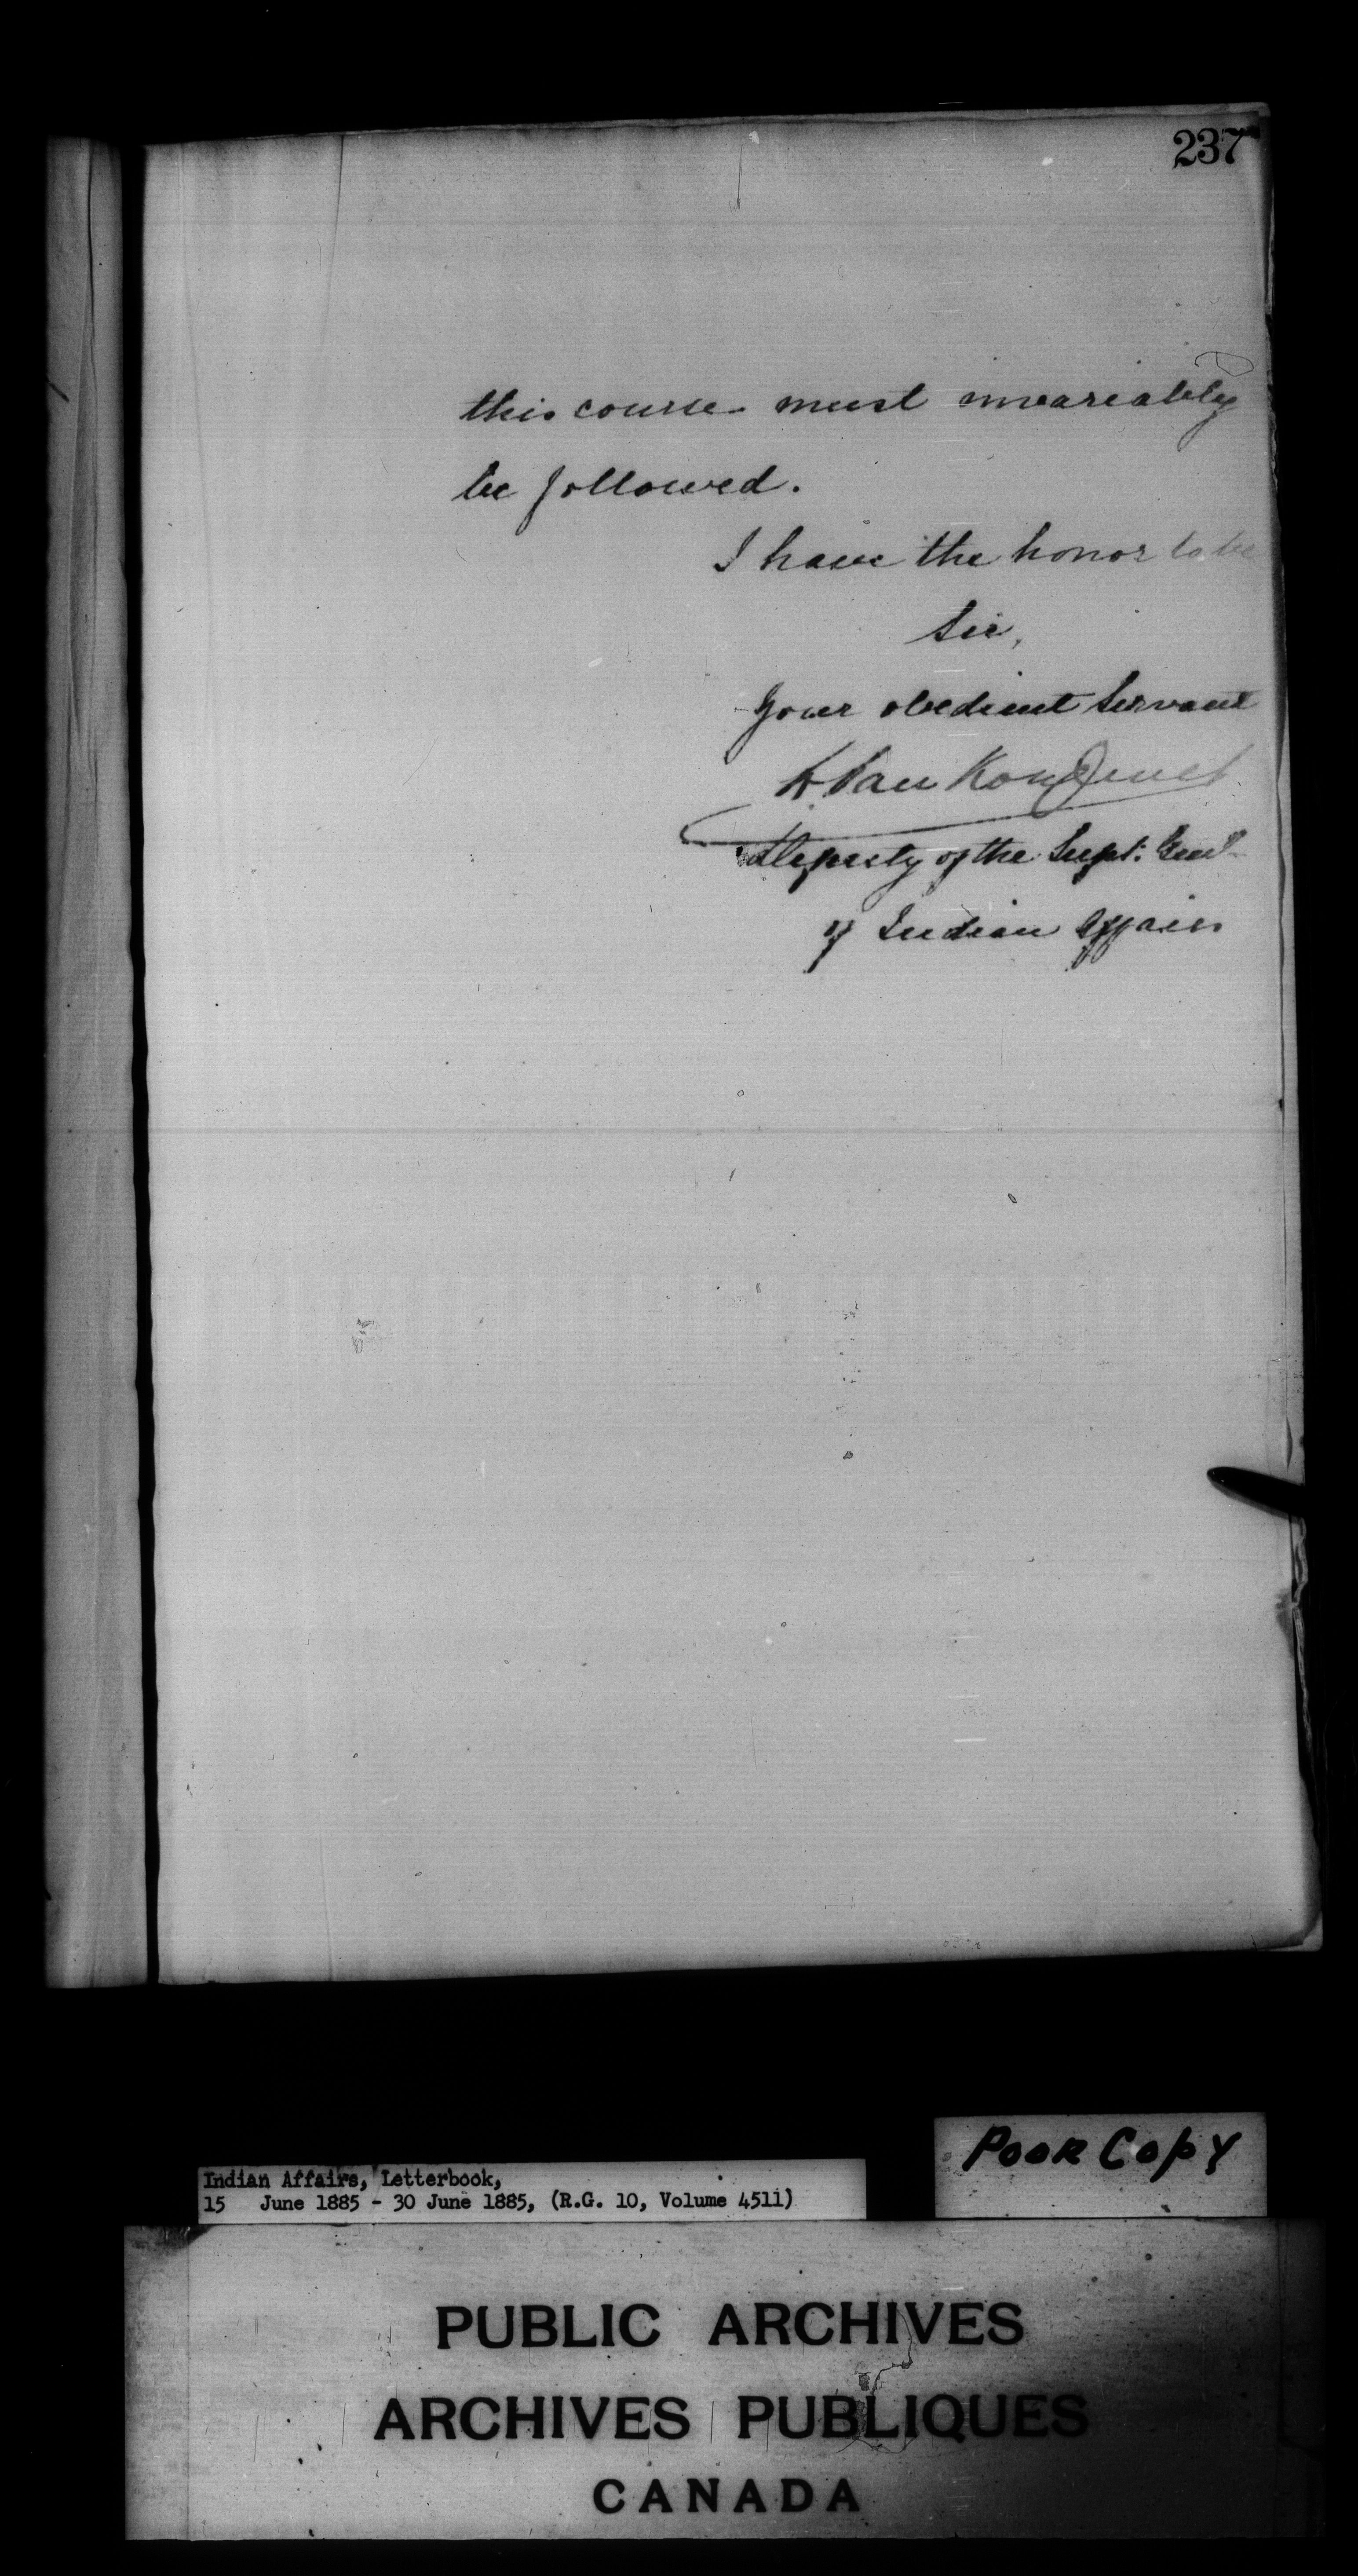 237
this course must invariably
be followed.
I have the honor to be
Sir,
Your obedient Servant
L. VanKoughnet
Deputy of the Supt. Genl
of Indian Affairs
Poor Copy
Indian Affairs, Letterbook,
15 June 1885 - 30 June 1885, (R.G. 10, Volume 4511)
PUBLIC ARCHIVES
ARCHIVES PUBLIQUES
CANADA